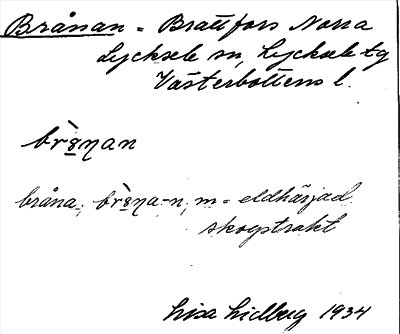 Brånan = Brattfors Norra
Lycksele sn, Lycksele tg
Västerbottens l.
brå̀ŋan
bråna, brå̀ŋa-n, m = eldhärjad
skogstrakt
Lisa Lidberg 1934